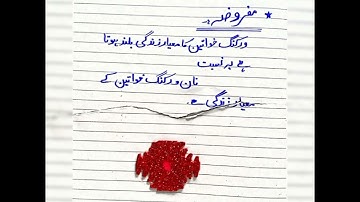 * مفروضہ:
ورکنگ خواتین کا معیار زندگی بلند ہوتا
ہے بہ نسبت
نان ورکنگ خواتین کے
معیار زندگی سے۔